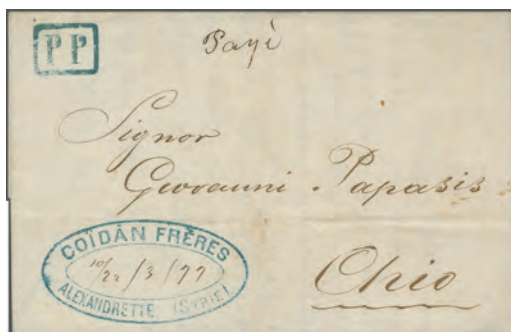 PP
Payè
Signor
Giovanni Papasis
COÏDÀN FRÈRES
10/22/3/77
ALEXANDRETTE (SYRIE)
Chio